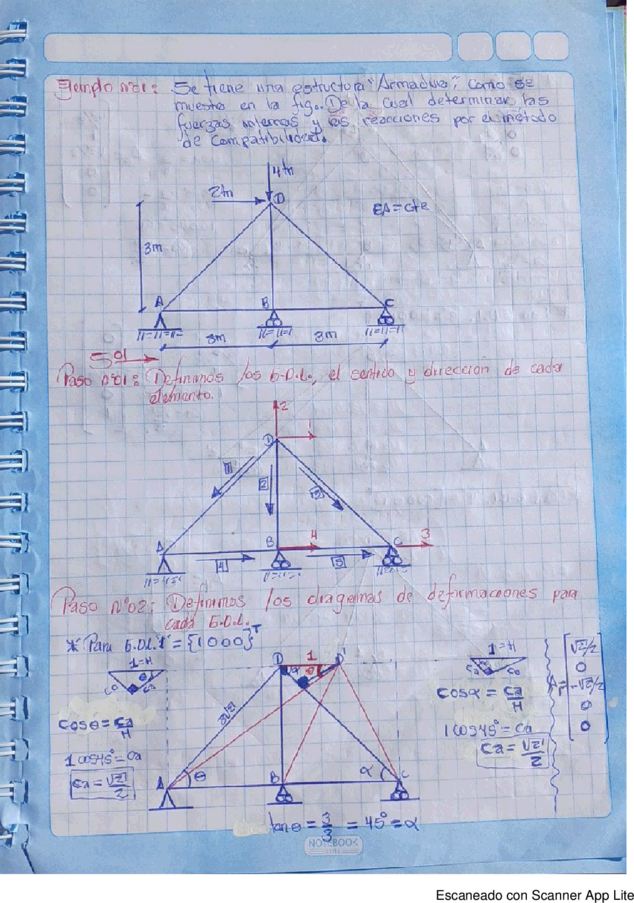 Ejemplo N°01: Se tiene una estructura "Armadura", como se
muestra en la fig. De la cual determinar las
fuerzas internas y las reacciones por el método
de Compatibilidad.
4tn
2tn
D
EA=cte
3m
A
B
C
3m
3m
Sol
Paso N°01: Definimos los G.D.L., el sentido y dirección de cada
elemento.
2
D
1
1
2
3
A
B
4
C
3
4
5
Paso N°02: Definimos los diagramas de deformaciones para
cada G.D.L.
* Para G.D.L.1 = {1000}ᵀ
1=H
θ
co
ca
cosθ = ca/H
1 cos45° = ca
ca = √2/2
D
1
D'
A
θ
B
α
C
tanθ = 3/3 = 45° = α
1=H
ca
co
cosα = ca/H
1 cos45° = ca
ca = √2/2
√2/2
0
-√2/2
0
0
NOTEBOOK
Escaneado con Scanner App Lite